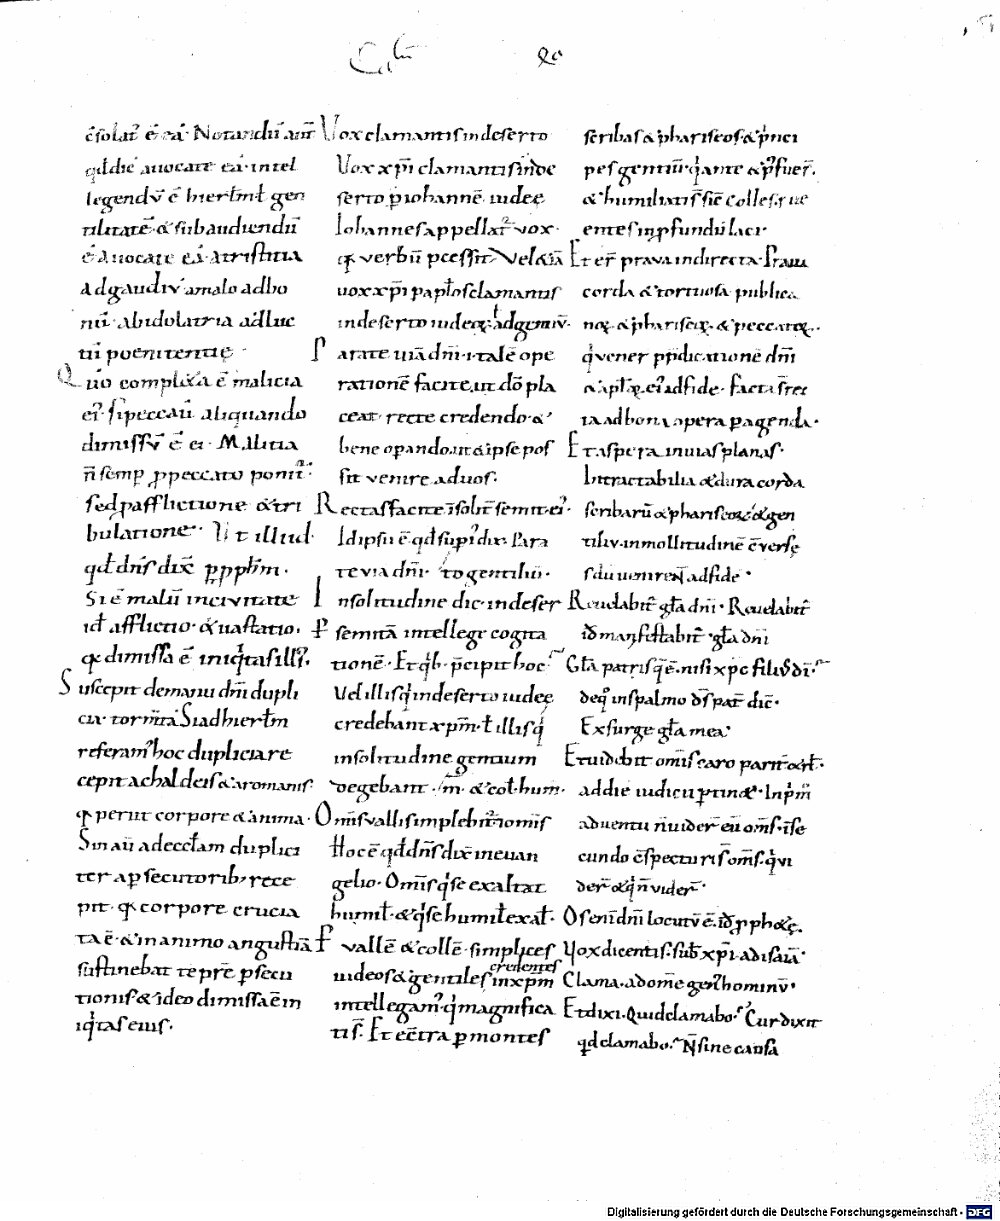 c̄solat᷒ ē eā· Notandū aut̄
qd̄ dic̄ auocate eā· intel
legendv̄ ē hierłm̄ł gen
tilitatē· & subaudiendū
ē auocate eā· a tristitia
ad gaudiv̄ a malo ad bo
nū· ab idolatria ad luc
tū poenitentię·
Qm̄o complexa ē malicia
ei᷒· si peccatū aliquando
dimissv̄ ē ei· Malitia
n̄ semp̱ ꝓ peccato ponit᷒·
sed p̱ afflictione & tri
bulatione· Vt illud·
qd̄ dn̄s dix̄ p̱ ppłm̄·
Si ē malū in civitate
id̄ afflictio· & uastatio·
quę dimissa ē iniqͥtas illi᷒·
Suscepit de manu dn̄i dupli
cia tormm̄ta Si ad hierłm̄
referam᷒ hoc dupliciare
cepit a chaldeis & a romanis·
q perut corpore & anima·
Sin aū ad eccłam duplici
ter a p̱secutorib᷒ rece
pit· quę corpore crucia
ta ē· & in animo angustiā
sustinebat te prē p̱secu
tionis & ideo dimissa ē in
iqͥtas eius·
Vox clamantis in deserto
Vox xp̄i clamantis in de
serto p̱ iohannē iudeę
Iohannes appellat᷒ vox·
quę verbū p̱cessit· Vel etiā
uox xp̄i p̱ apłos clamantis
in deserto iudeę· & ad gentiv̄·
Parate uiā dn̄i· i· talē ope
rationē facite· ut dō pla
ceat· recte credendo· &
bene op̱ando· ut & ipse pos
sit venire ad uos·
Rectas facite ī solit̄ semit̄ ei᷒·
Id ipsū ē qd̄ sup̱ dix̄· Para
te via dn̄i·
In solitudine dic̄· in deser
to gentiliū·
Per semitā intellege cogita
tionē· Et qͥb᷒ p̄cipit hoc·
Vel illis qͥ in deserto iudeę
credebant xp̄m· ł illis qͥ
in solitudine gentium
degebant· Om̄· & coł· hum·
Om̄s vallis implebit᷒ & om̄is
Hoc ē qd̄ dn̄s dix̄ in euan
gelio· Om̄is qͥ se exaltat
humił· & qͥ se humiłexał·
Per vallē & collē· simplices
iudeos & gentiles credentes in xp̄m
intellegam᷒· qͥ magnifica
ti s̄· Et ec̄tra p̱ montes
scribas & phariseos & p̄nci
pes gentiū· qͥ ante & p᷒ fuer̄·
& humiliati s̄ sic̄ colles· rue
entes in p̱fundū laci·
Et er̄ prava in directa· Praua
corda & tortuosa publica
noꝝ & phariseoꝝ· & peccatoꝝ·
qͥ vener̄ p̱ p̱dicationē dn̄i
& apłoꝝ ei᷒ ad fidē· facta s̄ rec
ta ad bona opera p̱agenda·
Et aspera in uias planas·
Intractabilia & dura corda
scribarū & phariseoꝝ & gen
tiliv̄· in mollitudinē c̄verse
s̄ dū venirent ad fidē·
Reuelabit᷒ gła dn̄i· Reuelabit᷒
id̄ manifestabit᷒· gła dn̄i
Gła patris qͥ ē· nisi xp̄c filiv̄s dī·
de qͦ in psalmo d̄s pat̄ dic̄·
Exsurge gła mea·
Et uidebit om̄is caro pariter &cł·
ad diē iudicii p̱tinet· In pͥm
aduentu n̄ uider̄ eū om̄s· in se
cundo c̄specturi s̄ om̄s· qͥ vi
der̄ & qͥ n̄ vider̄·
Os enī dn̄i locutv̄ ē· id̄ ꝓph&ę·
Vox dicentis· sub xp̄i· ad isaiā·
Clama· ad om̄e gen᷒ hominv̄·
Et dixi· Quid clamabo· Cur dixit
qd̄ clamabo· N̄ sine causa
Digitalisierung gefördert durch die Deutsche Forschungsgemeinschaft - DFG